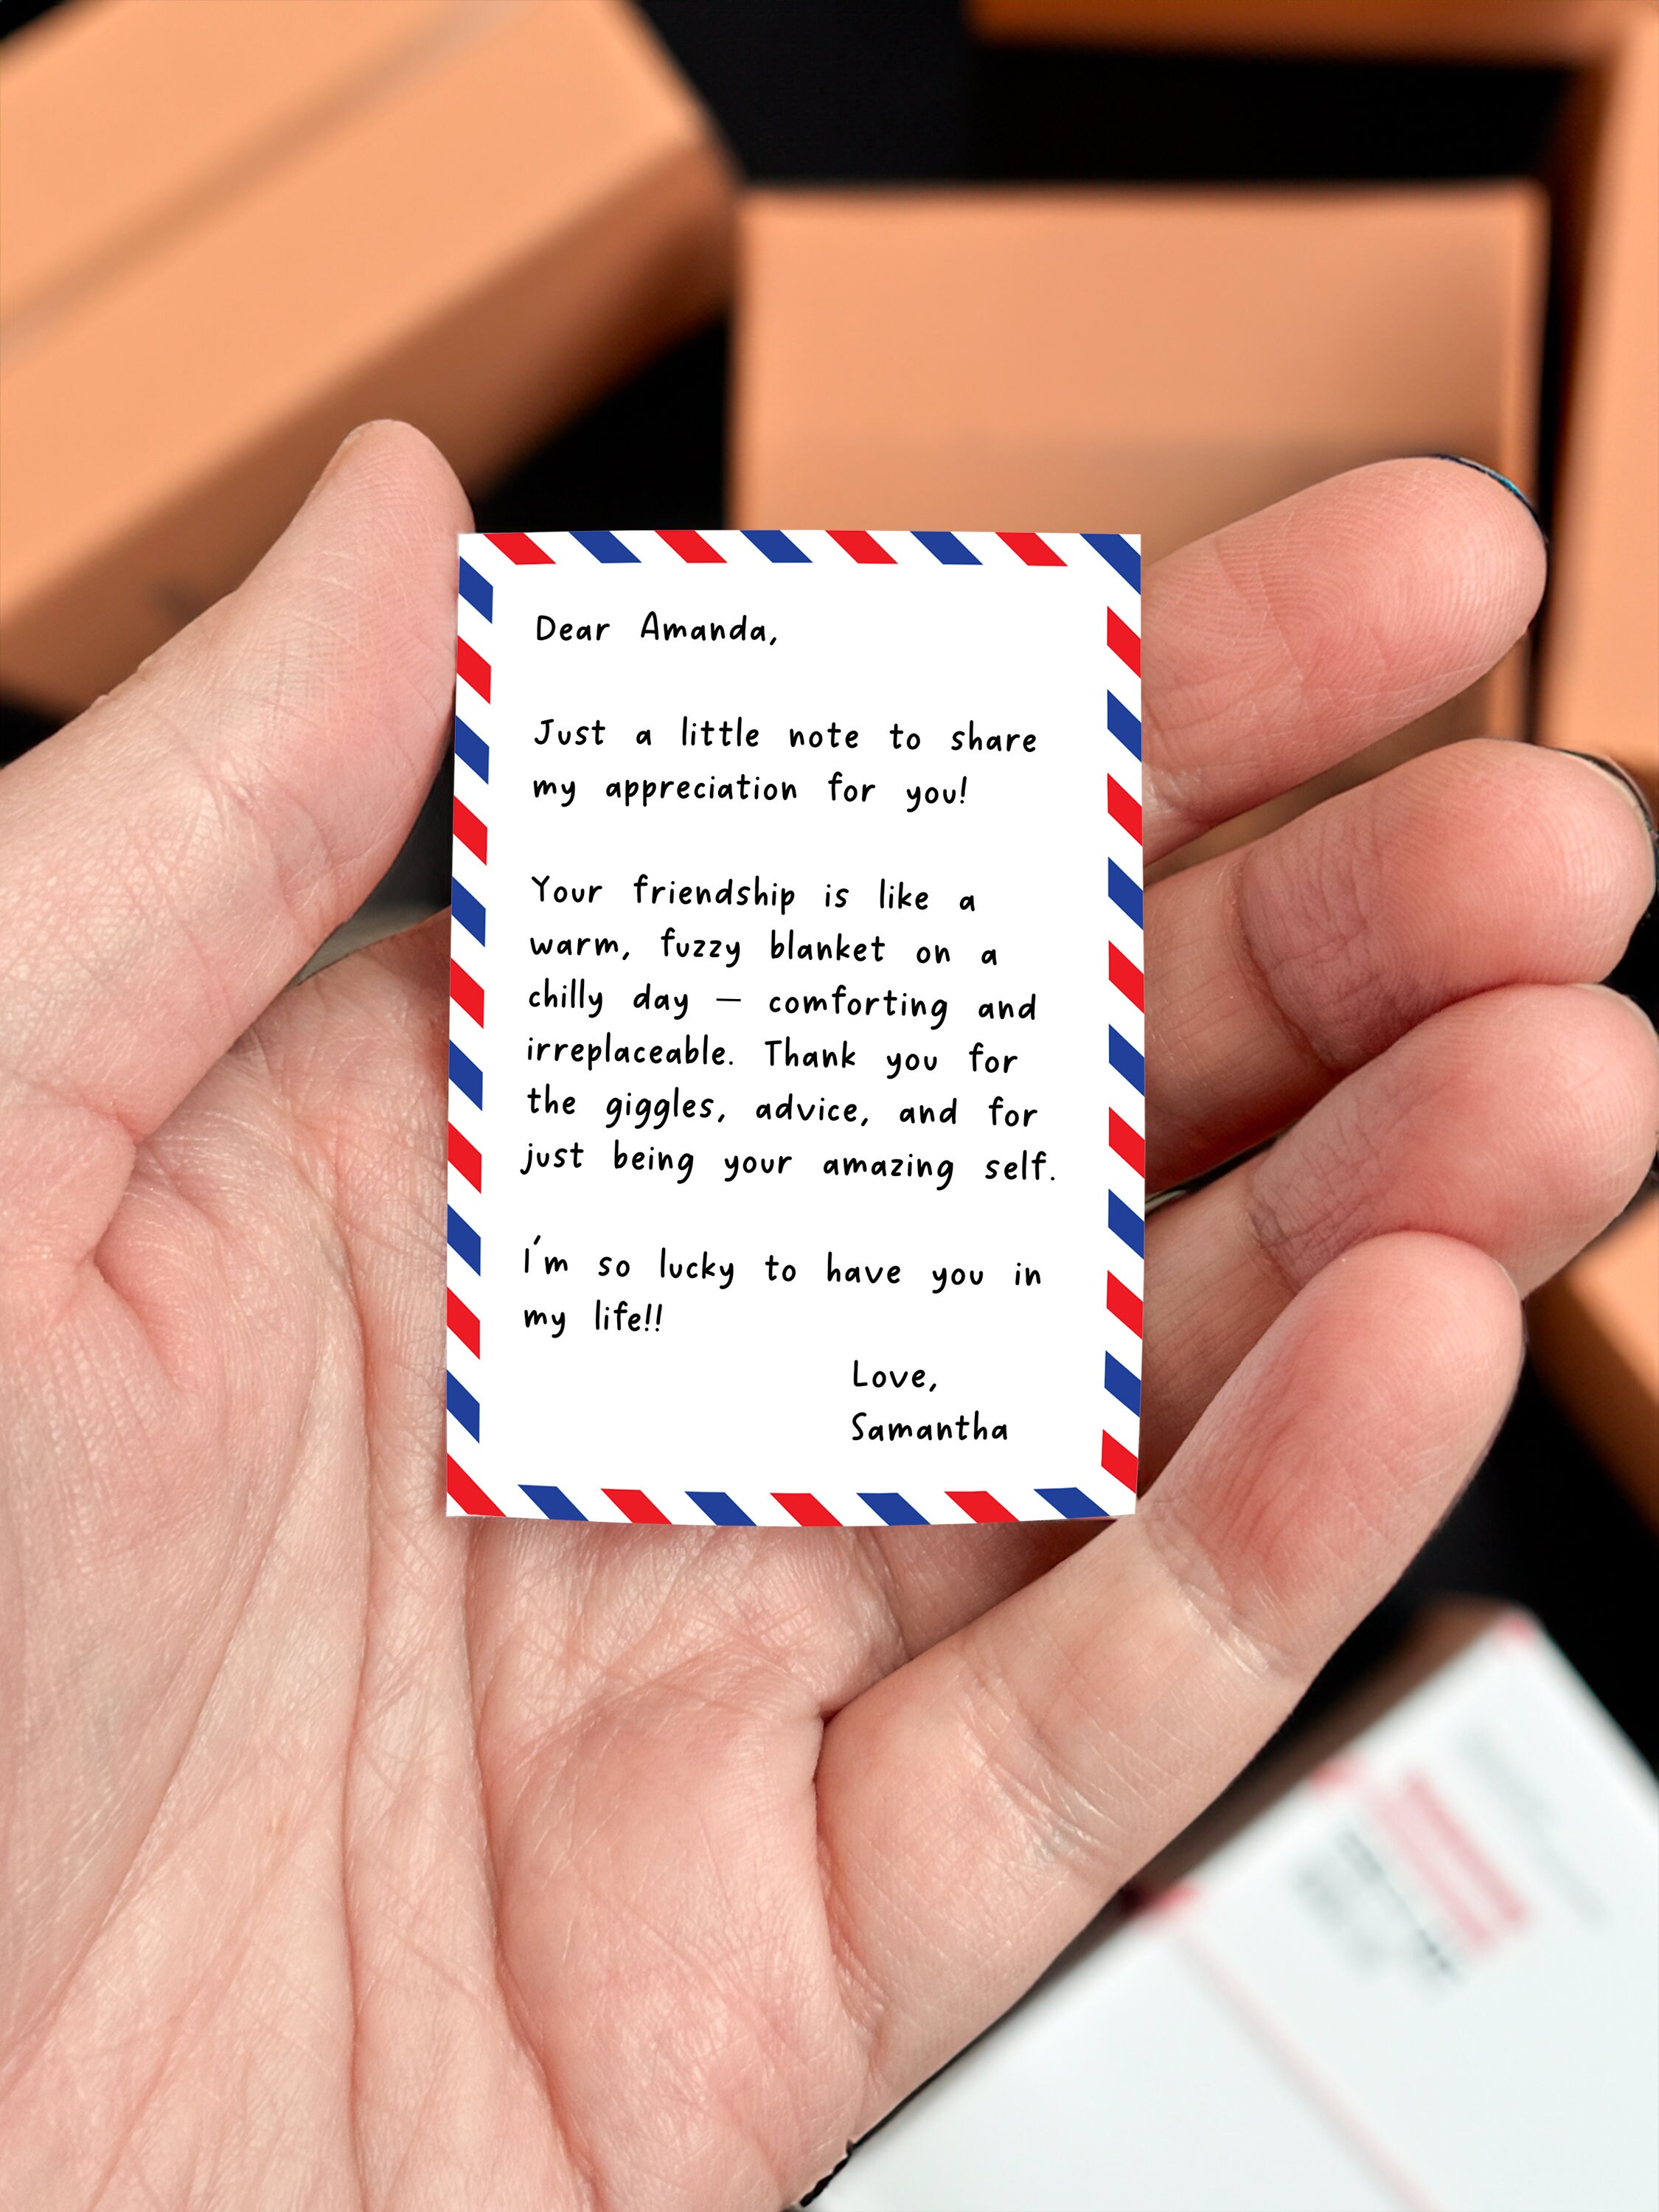 Dear Amanda,
Just a little note to share
my appreciation for you!
Your friendship is like a
warm, fuzzy blanket on a
chilly day – comforting and
irreplaceable. Thank you for
the giggles, advice, and for
just being your amazing self.
I'm so lucky to have you in
my life!!
Love,
Samantha